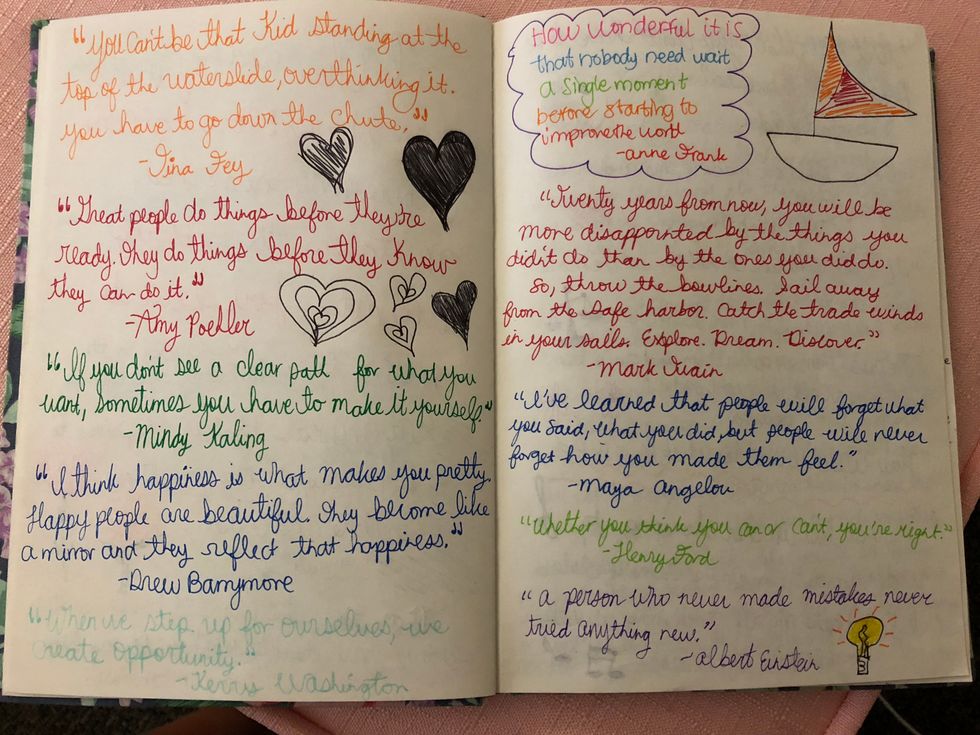 "You Can't be that Kid standing at the
top of the waterslide, overthinking it.
you have to go down the chute."
-Tina Fey
"Great people do things before they're
ready. They do things before they know
they can do it."
-Amy Poehler
"If you don't see a clear path for what you
want, sometimes you have to make it yourself."
-Mindy Kaling
"I think happiness is what makes you pretty.
Happy people are beautiful. They become like
a mirror and they reflect that happiness."
-Drew Barrymore
"When we step up for ourselves, we
create opportunity."
-Kerry Washington
How Wonderful it is
that nobody need wait
a single moment
before starting to
improve the world
-anne Frank
"Twenty years from now, you will be
more disappointed by the things you
didn't do than by the ones you did do.
So, throw the bowlines. Sail away
from the safe harbor. Catch the trade winds
in your sails. Explore. Dream. Discover."
-Mark Twain
"I've learned that people will forget what
you said, what you did, but people will never
forget how you made them feel."
-Maya Angelou
"Whether you think you can or can't, you're right."
-Henry Ford
"a person who never made mistakes never
tried anything new."
-albert Einstein